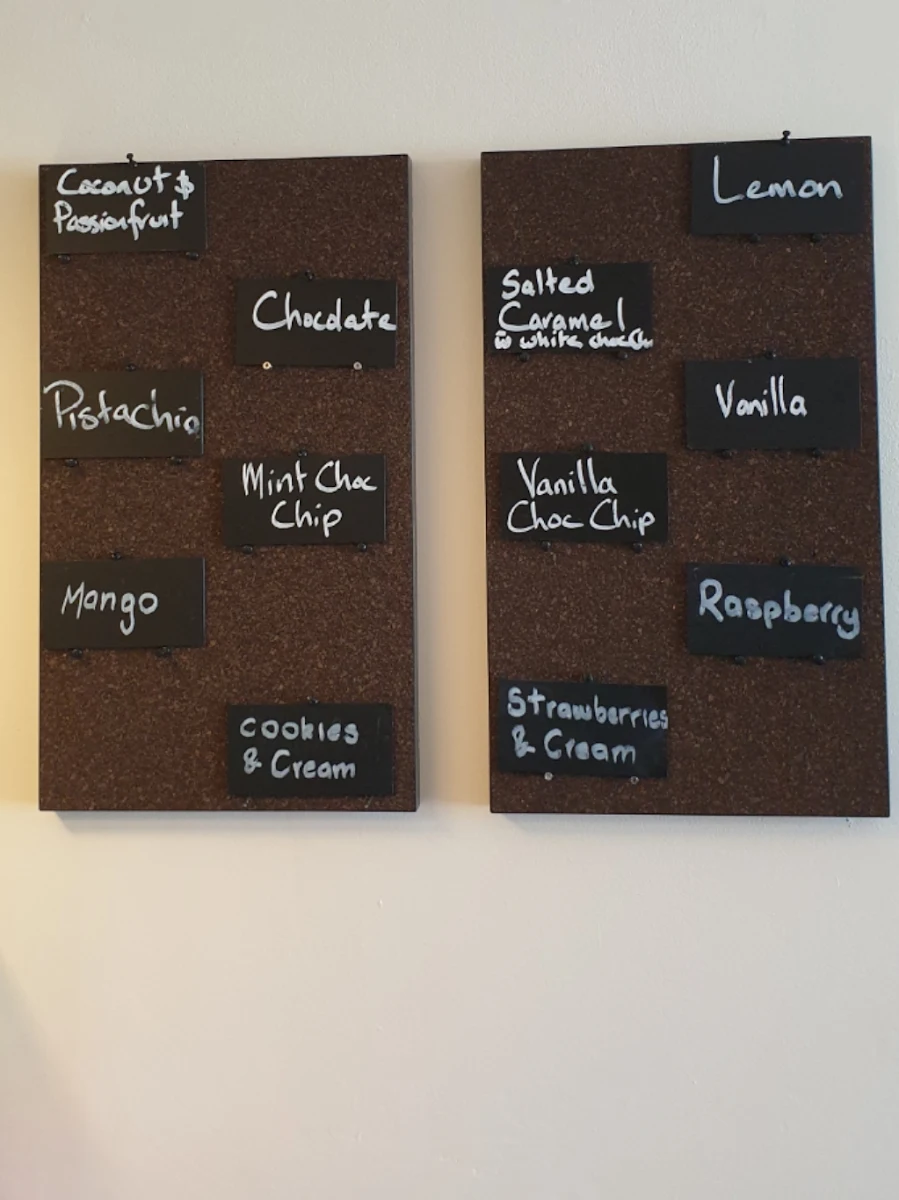 Coconut &
Passionfruit
Chocolate
Pistachio
Mint Choc
Chip
Mango
Cookies
& Cream
Lemon
Salted
Caramel
w white choc Ch
Vanilla
Vanilla
Choc Chip
Raspberry
Strawberries
& Cream